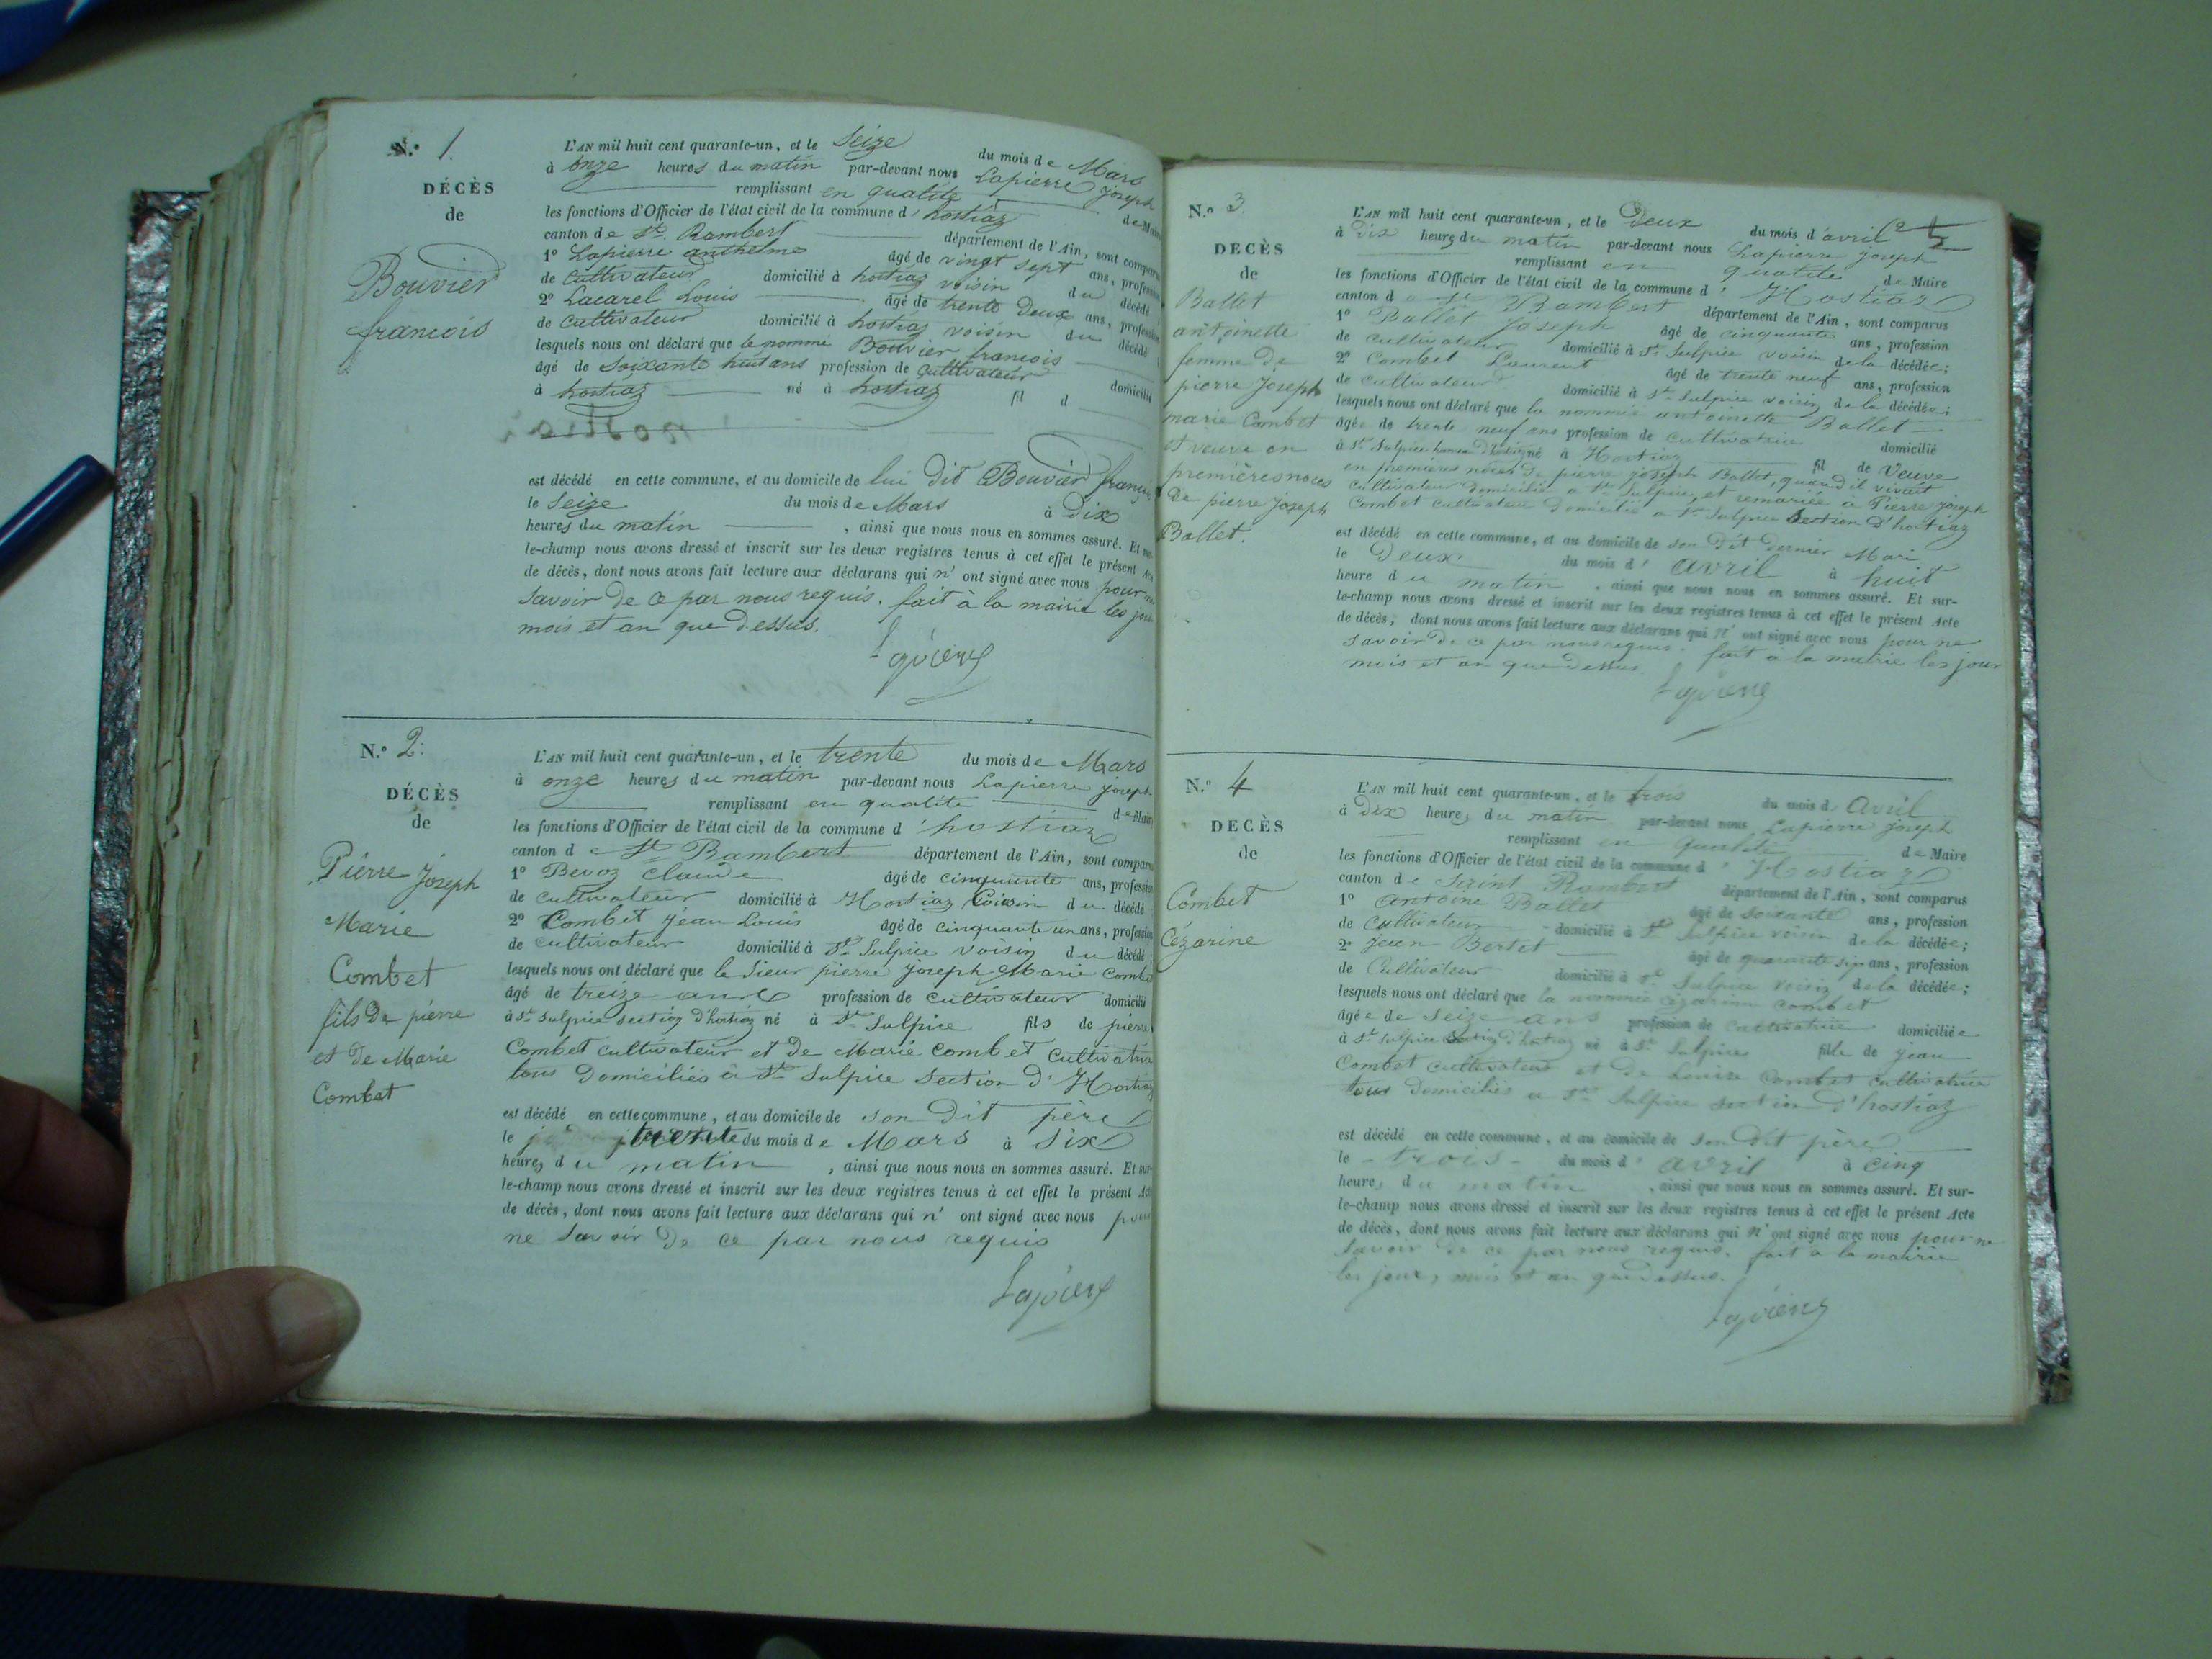 N.o 1.
DÉCÈS
de
Bouvier
francois
L'AN mil huit cent quarante-un, et le Seize du mois de Mars
à onze heures du matin par-devant nous Lapierre joseph
remplissant en qualité de Maire
les fonctions d'Officier de l'état civil de la commune d'hostiaz
canton de St. Rambert département de l'Ain, sont comparus
1o Lapierre anthelme âgé de vingt sept ans, profession
de Cultivateur domicilié à hostiaz voisin du décédé
2o Lacarel Louis âgé de trente Deux ans, profession
de Cultivateur domicilié à hostiaz voisin du décédé
lesquels nous ont déclaré que le nommé Bouvier francois
âgé de Soixante huit ans profession de Cultivateur domicilié
à hostiaz né à hostiaz fil d
est décédé en cette commune, et au domicile de lui dit Bouvier françois
le Seize du mois de Mars à Dix
heures du matin, ainsi que nous nous en sommes assuré. Et sur-
le-champ nous avons dressé et inscrit sur les deux registres tenus à cet effet le présent Acte
de décès, dont nous avons fait lecture aux déclarans qui n'ont signé avec nous pour ne
Savoir De ce par nous requis. fait à la mairie les jour
mois et an que Dessus.
Lapierre
N.o 2.
DÉCÈS
de
Pierre Joseph
Marie
Combet
fils De pierre
et de Marie
Combet
L'AN mil huit cent quarante-un, et le trente du mois de Mars
à onze heures du matin par-devant nous Lapierre joseph
remplissant en qualité de Maire
les fonctions d'Officier de l'état civil de la commune d'hostiaz
canton de St Rambert département de l'Ain, sont comparus
1o Bevoz Claude âgé de cinquante ans, profession
de cultivateur domicilié à Hostiaz Voisin du décédé
2o Combet Jean Louis âgé de cinquante un ans, profession
de cultivateur domicilié à St Sulpice Voisin du décédé
lesquels nous ont déclaré que le Sieur pierre joseph Marie Combet
âgé de treize ans profession de cultivateur domicilié
à St Sulpice section d'hostiaz né à St Sulpice fils de pierre
Combet cultivateur et de Marie Combet Cultivatrice
tous Domiciliés à St Sulpice Section D'Hostiaz
est décédé en cette commune, et au domicile de son Dit père
le trente du mois de Mars à Six
heures du matin, ainsi que nous nous en sommes assuré. Et sur-
le-champ nous avons dressé et inscrit sur les deux registres tenus à cet effet le présent Acte
de décès, dont nous avons fait lecture aux déclarans qui n'ont signé avec nous pour
ne Savoir De ce par nous requis
Lapierre
N.o 3.
DECÈS
de
Ballet
antoinette
femme De
pierre Joseph
marie Combet
et veuve en
premières noces
De pierre Joseph
Ballet.
L'AN mil huit cent quarante-un, et le Deux du mois d'avril
à Dix heures du matin par-devant nous Lapierre joseph
remplissant en qualité de Maire
les fonctions d'Officier de l'état civil de la commune d'Hostiaz
canton de St Rambert département de l'Ain, sont comparus
1o Ballet Joseph âgé de cinquante ans, profession
de cultivateur domicilié à St Sulpice voisin de la décédée;
2o Combet Laurent âgé de trente neuf ans, profession
de cultivateur domicilié à St Sulpice voisin de la décédée;
lesquels nous ont déclaré que la nommée antoinette Ballet
âgée de trente neuf ans profession de cultivatrice domicilié
à St Sulpice né à Hostiaz fil de Veuve
en premières noces De pierre joseph Ballet, quand il vivait
cultivateur Domicilié a St Sulpice, et remariée à Pierre joseph
Combet cultivateur Domicilié a St Sulpice Section D'hostiaz
est décédé en cette commune, et au domicile de son Dit Dernier Mari
le Deux du mois d'avril à huit
heure du matin, ainsi que nous nous en sommes assuré. Et sur-
le-champ nous avons dressé et inscrit sur les deux registres tenus à cet effet le présent Acte
de décès, dont nous avons fait lecture aux déclarans qui n'ont signé avec nous pour ne
savoir De ce par nous requis. fait à la mairie les jour
mois et an que Dessus.
Lapierre
N.o 4
DECÈS
de
Combet
Cézarine
L'AN mil huit cent quarante-un, et le trois du mois d'Avril
à Dix heures du matin par-devant nous Lapierre joseph
remplissant en qualité de Maire
les fonctions d'Officier de l'état civil de la commune d'Hostiaz
canton de Saint Rambert département de l'Ain, sont comparus
1o Antoine Ballet âgé de soixante ans, profession
de Cultivateur domicilié à St Sulpice voisin de la décédée;
2o Jean Bertet âgé de quarante six ans, profession
de Cultivateur domicilié à St Sulpice Voisin de la décédée;
lesquels nous ont déclaré que la nommée cézarine combet
âgée de Seize ans profession de cultivatrice domiciliée
à St Sulpice Section d'hostiaz né à St Sulpice fille de jean
Combet cultivateur et de Louise Combet cultivatrice
tous Domiciliés a St Sulpice section d'hostiaz
est décédé en cette commune, et au domicile de son dit père
le trois du mois d'avril à cinq
heures du matin, ainsi que nous nous en sommes assuré. Et sur-
le-champ nous avons dressé et inscrit sur les deux registres tenus à cet effet le présent Acte
de décès, dont nous avons fait lecture aux déclarans qui n'ont signé avec nous pour ne
Savoir De ce par nous requis. fait a la mairie
les jour, mois et an que dessus.
Lapierre